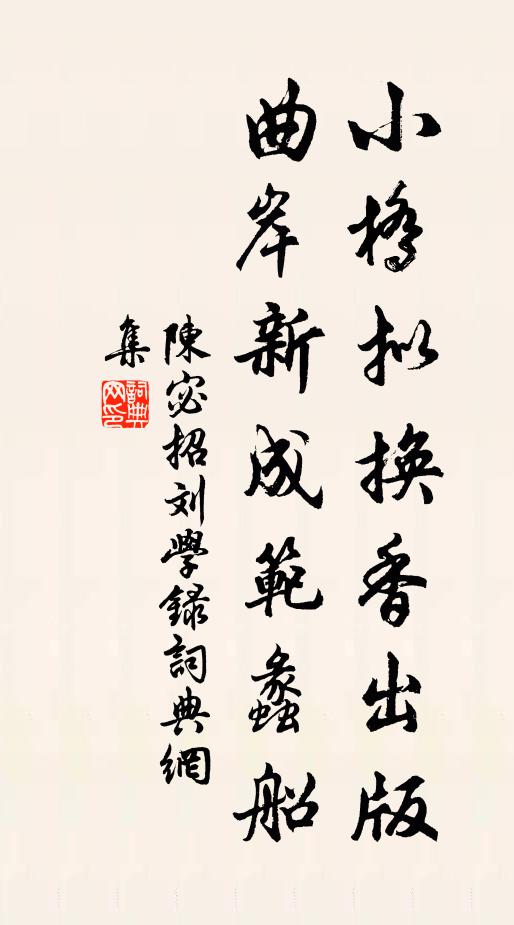 小橋拟換香出版
曲岸新成範蠡船
陳宓招刘學録詞典網
集
詞典
网印